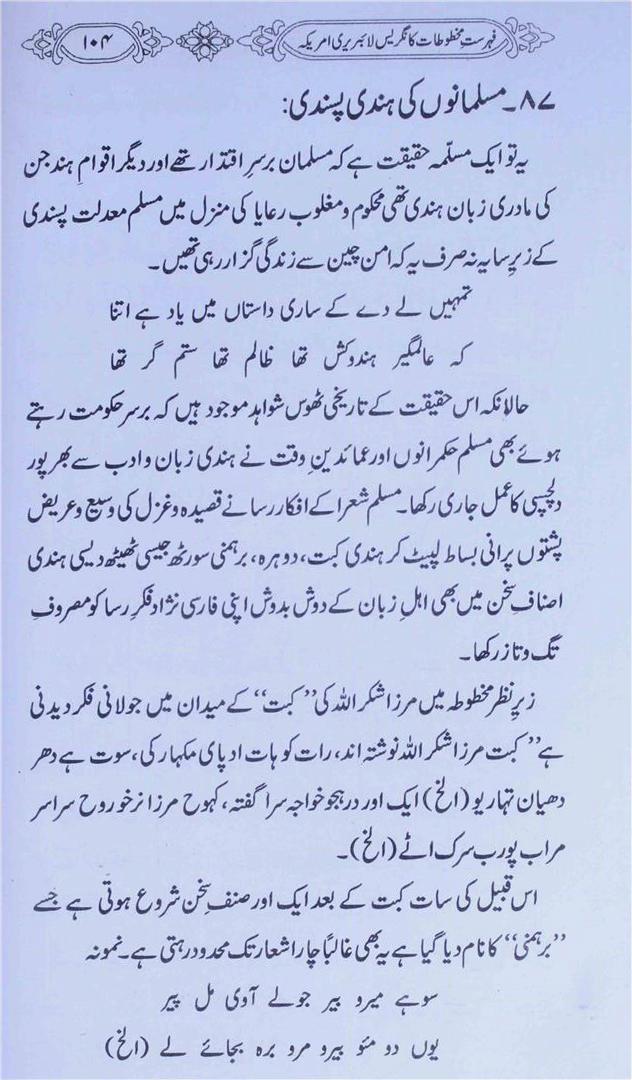 فہرستِ مخطوطات کانگریس لائبریری امریکہ
۱۰۴
۸۷۔ مسلمانوں کی ہندی پسندی:
یہ تو ایک مسلّمہ حقیقت ہے کہ مسلمان برسرِ اقتدار تھے اور دیگر اقوامِ ہند جن
کی مادری زبان ہندی تھی محکوم و مغلوب رعایا کی منزل میں مسلم معدلت پسندی
کے زیرِ سایہ نہ صرف یہ کہ امن چین سے زندگی گزار رہی تھیں۔
تمہیں لے دے کے ساری داستاں میں یاد ہے اتنا
کہ عالمگیر ہندوکش تھا ظالم تھا ستم گر تھا
حالانکہ اس حقیقت کے تاریخی ٹھوس شواہد موجود ہیں کہ برسرِ حکومت رہتے
ہوئے بھی مسلم حکمرانوں اور عمائدینِ وقت نے ہندی زبان و ادب سے بھرپور
دلچسپی کا عمل جاری رکھا۔ مسلم شعرا کے افکار رسا نے قصیدہ و غزل کی وسیع و عریض
پشتوں پرانی بساط لپیٹ کر ہندی کبت، دوہرہ، برہمنی سورٹھ جیسی ٹھیٹھ دیسی ہندی
اصنافِ سخن میں بھی اہلِ زبان کے دوش بدوش اپنی فارسی نژاد فکرِ رسا کو مصروفِ
تگ و تاز رکھا۔
زیرِ نظر مخطوطہ میں مرزا شکر اللہ کی ’’کبت‘‘ کے میدان میں جولانی فکر دیدنی
ہے ’’کبت مرزا شکر اللہ نوشتہ اند، رات کو ہات ادپای مکہار کی، سوت ہے دھر
دھیان تہاریو (الخ) ایک اور در ہجو خواجہ سرا گفتہ، کہوح مرزا نرخو روح سراسر
مراب پورب سرک اٹے (الخ)۔
اس قبیل کی سات کبت کے بعد ایک اور صنفِ سخن شروع ہوتی ہے جسے
’’برہمنی‘‘ کا نام دیا گیا ہے یہ بھی غالباً چار اشعار تک محدود رہتی ہے۔ نمونہ
سوہے میرو بیر جولے آوی مل پیر
یوں دو مئو بیرو مرو برہ بجائے لے (الخ)